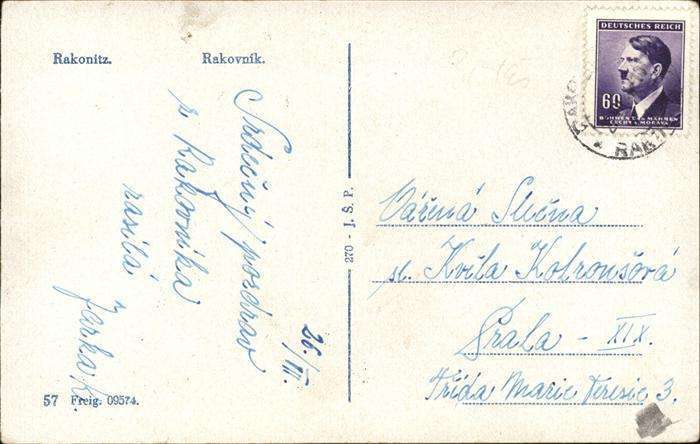 Rakonitz.
Rakovník.
Srdečný pozdrav
z Rakovníka
zasílá
Jarka K.
26/III.
57 Freig. 09574.
270 - J. Š. P.
DEUTSCHES REICH
60
BÖHMEN U. MÄHREN
ČECHY A MORAVA
RAKO
RAK
Vážená Slečna
sl. Květa Kolroušová
Praha - XIX.
Třída Marie Terezie 3.